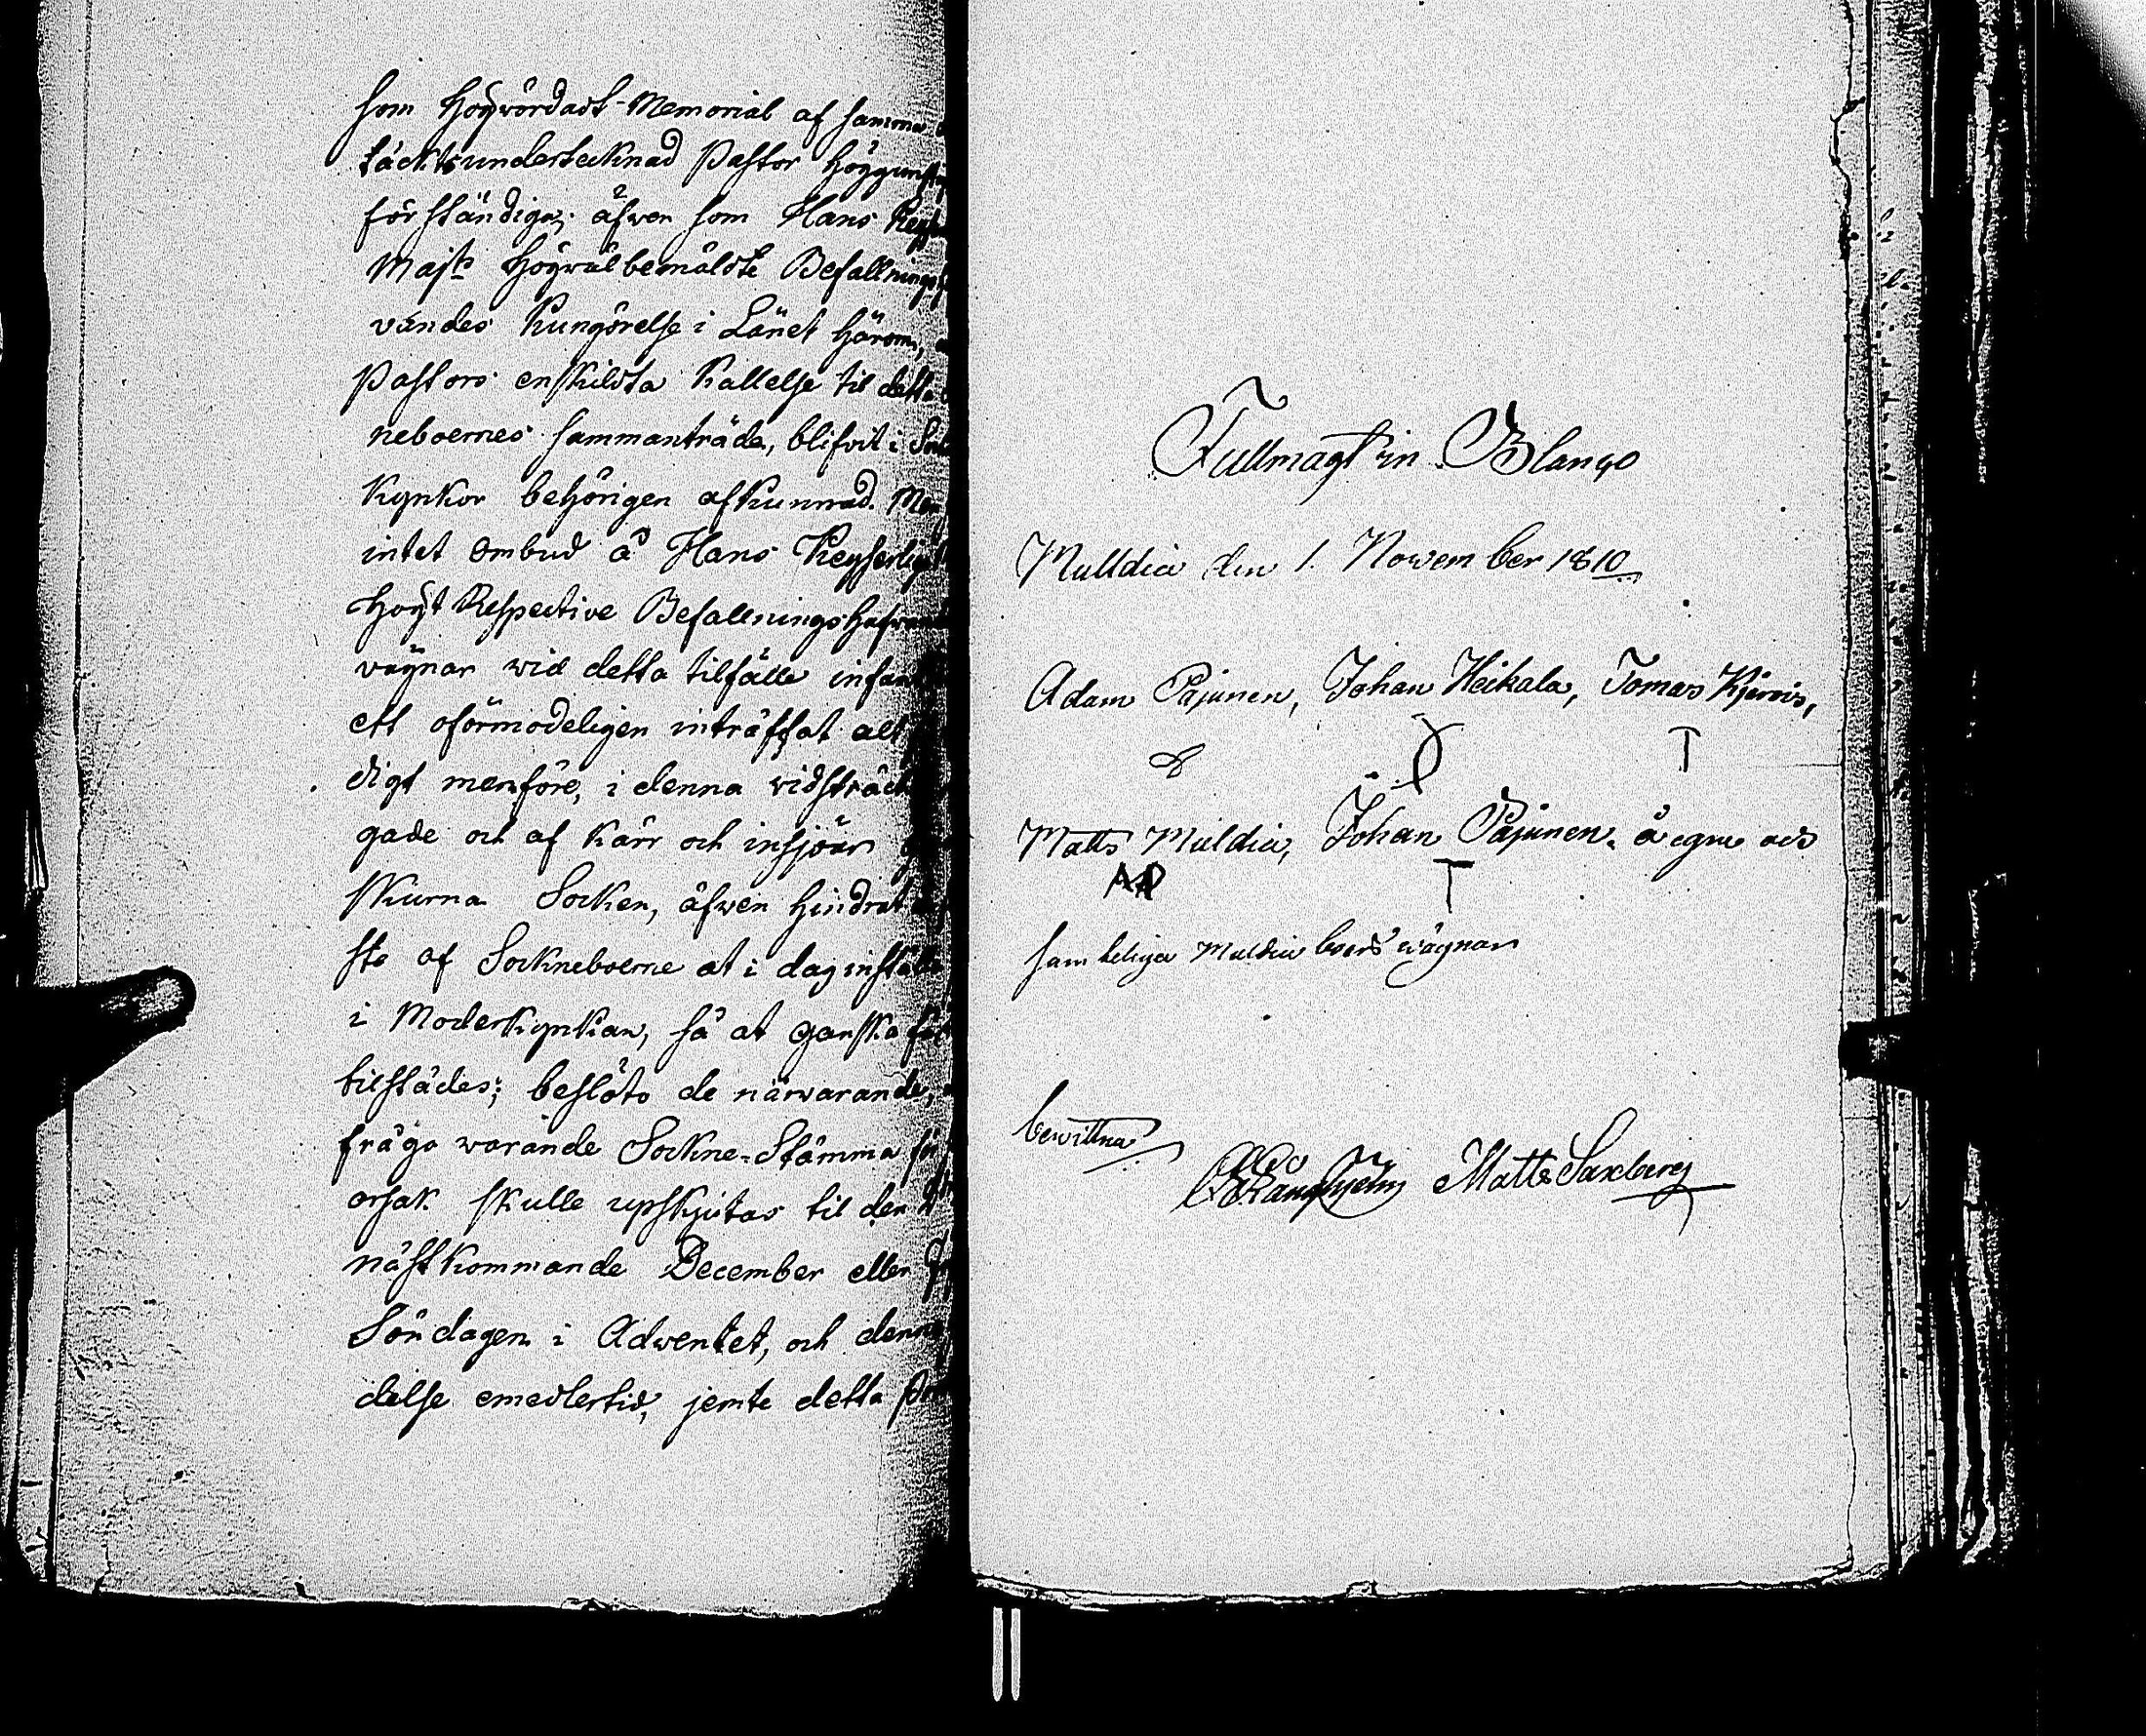 som Högwördast Memorial af samma
täckts undertecknad Pastor Höggunstig
förständiga; äfwen som Hans Keyser
Majts Högwälbemäldte Befallningsha
vandes Kungörelse i Länet härom,
Pastors enskildta Kallelse til detta
neboernes sammanträde, blifvit i
Kyrkor behörigen afkunnad. Men
intet ombud å Hans Keyserlige
Högt Respective Befallningshafwand
vägnar wid detta tilfälle infan
ett oförmodeligen inträffat alt
digt menföre, i denna vidsträck
gade och af Kärr och insjöar
skurna Socken, äfwen hindrat
ste af Sockneboerne at i dag instäl
i Moderkyrkan, så at ganska få
tilstädes; beslöto de närwarande,
fråga warande Sockne-Stämma för
orsak skulle upskjutas til den
nästkommande December eller
Söndagen i Adwentet, och denna
delse emedlertid, jemte detta
Fullmagt in Blanco
Mulldia den 1. Nowember 1810
Adam Pajunen, Johan Heikala, Tomas
T
Matts Muldia, Johan Pajunen. å egne och
T
samteliga Muldia boers wägnar
bewittna
Matts Saxberg